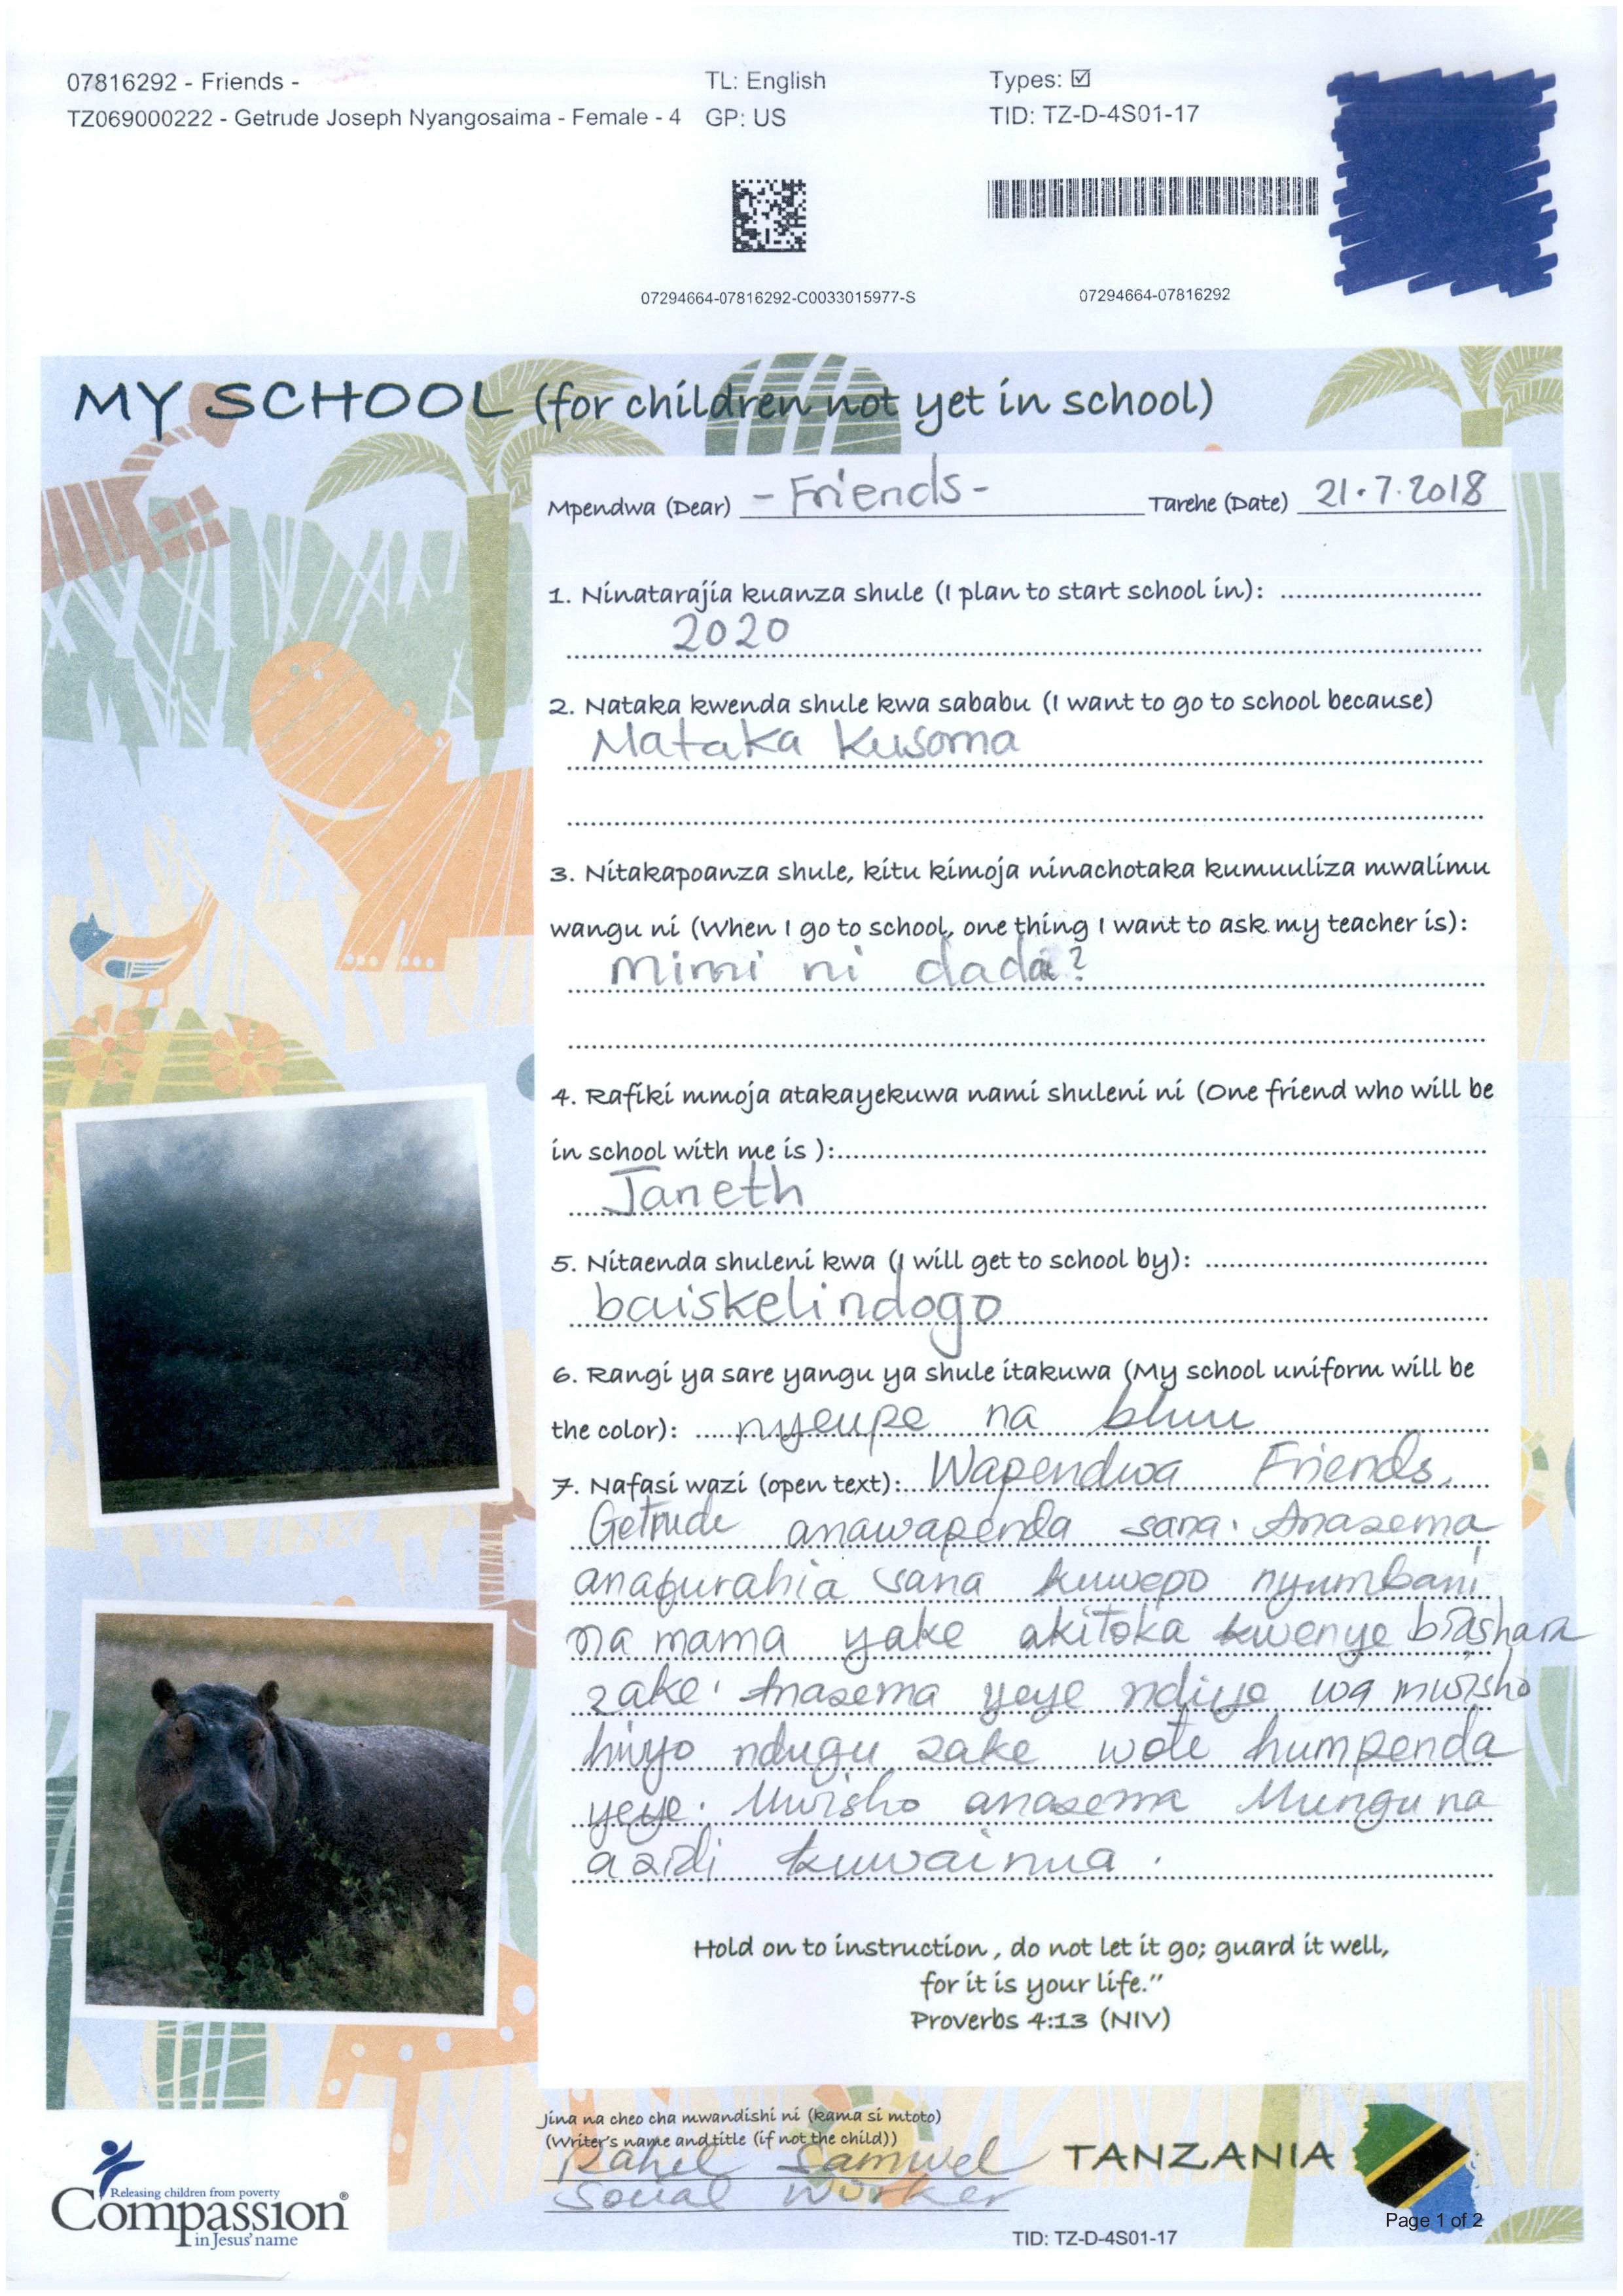 07816292 - Friends -
TL: English
Types: ☑
TZ069000222 - Getrude Joseph Nyangosaima - Female - 4
GP: US
TID: TZ-D-4S01-17
07294664-07816292-C0033015977-S
07294664-07816292
MY SCHOOL (for children not yet in school)
Mpendwa (Dear) - Friends - Tarehe (Date) 21.7.2018
1. Ninatarajia kuanza shule (I plan to start school in):
2020
2. Nataka kwenda shule kwa sababu (I want to go to school because)
Nataka kusoma
3. Nitakapoanza shule, kitu kimoja ninachotaka kumuuliza mwalimu
wangu ni (When I go to school, one thing I want to ask my teacher is):
mimi ni dada?
4. Rafiki mmoja atakayekuwa nami shuleni ni (One friend who will be
in school with me is ):
Janeth
5. Nitaenda shuleni kwa (I will get to school by):
baiskelindogo
6. Rangi ya sare yangu ya shule itakuwa (My school uniform will be
the color): nyeupe na bluu
7. Nafasi wazi (open text): Wapendwa Friends,
Getrude anawapenda sana. Anasema
anafurahia sana kuwepo nyumbani
na mama yake akitoka kwenye biashara
zake. Anasema yeye ndiye wa mwisho
hivyo ndugu zake wote humpenda
yeye. Mwisho anasema Mungu na
azidi kuwainua.
Hold on to instruction, do not let it go; guard it well,
for it is your life."
Proverbs 4:13 (NIV)
Jina na cheo cha mwandishi ni (kama si mtoto)
(Writer's name and title (if not the child))
Rahel Samwel
Social Worker
TANZANIA
Releasing children from poverty
Compassion®
in Jesus' name
Page 1 of 2
TID: TZ-D-4S01-17